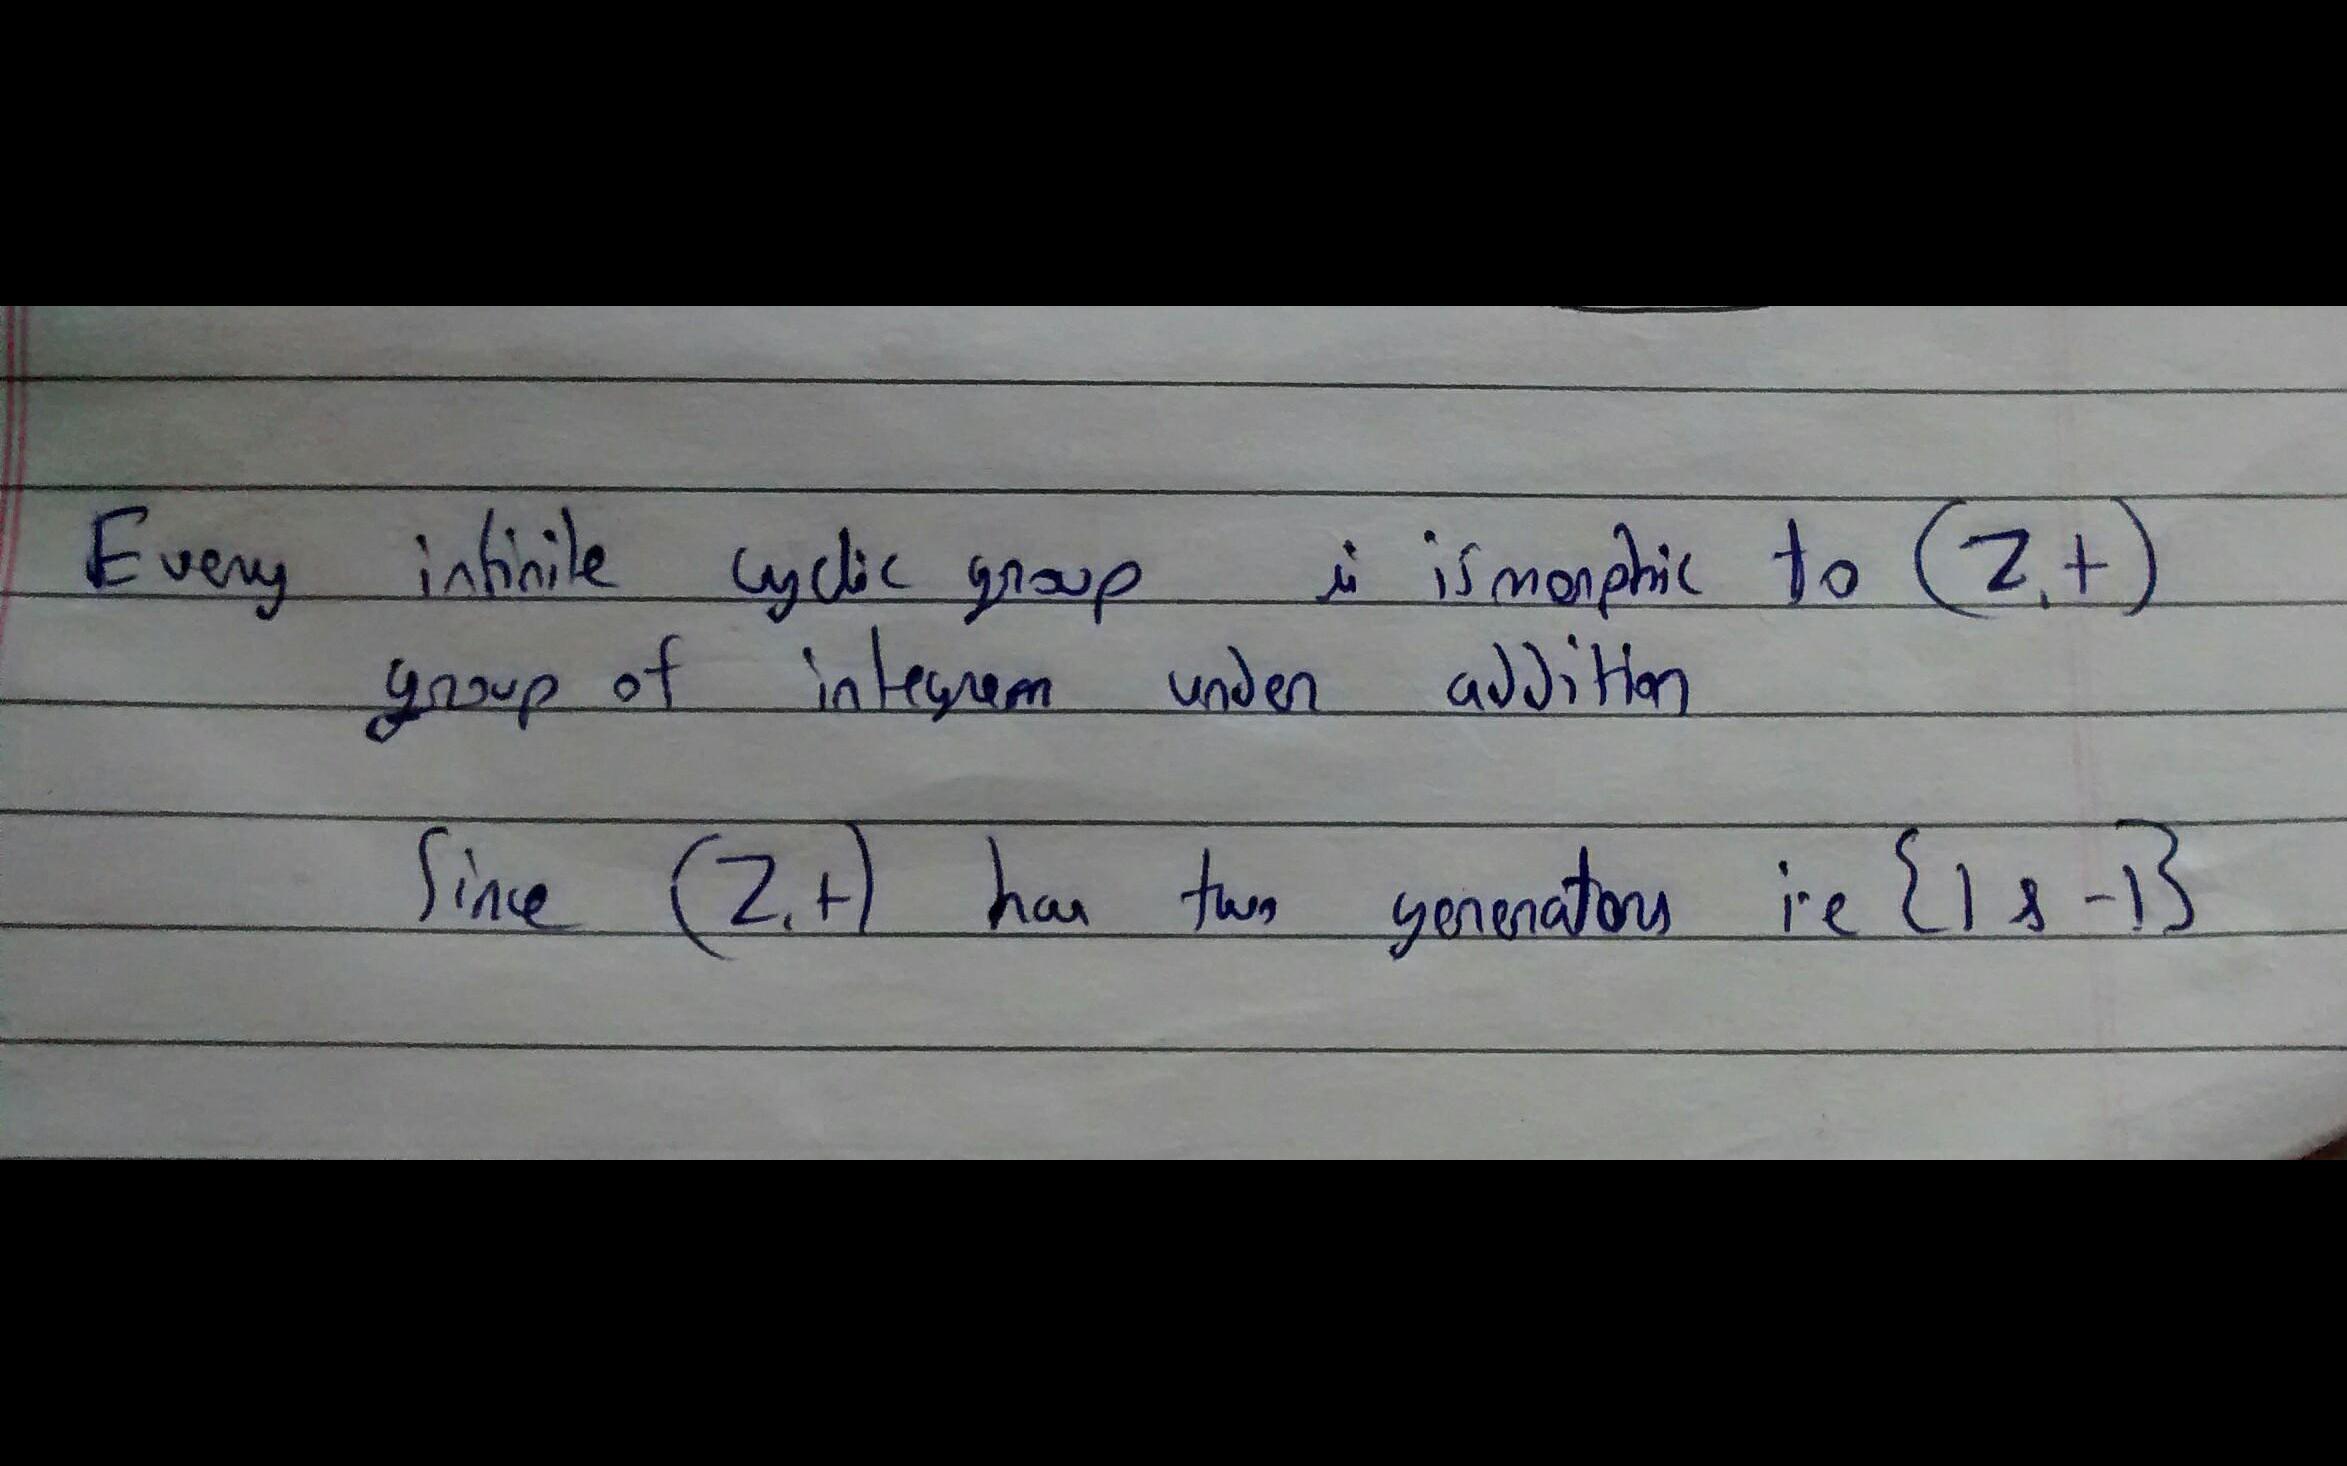 Every infinite cyclic group is ismorphic to (Z,+)
group of integers under addition
Since (Z,+) has two generators i.e {1 & -1}